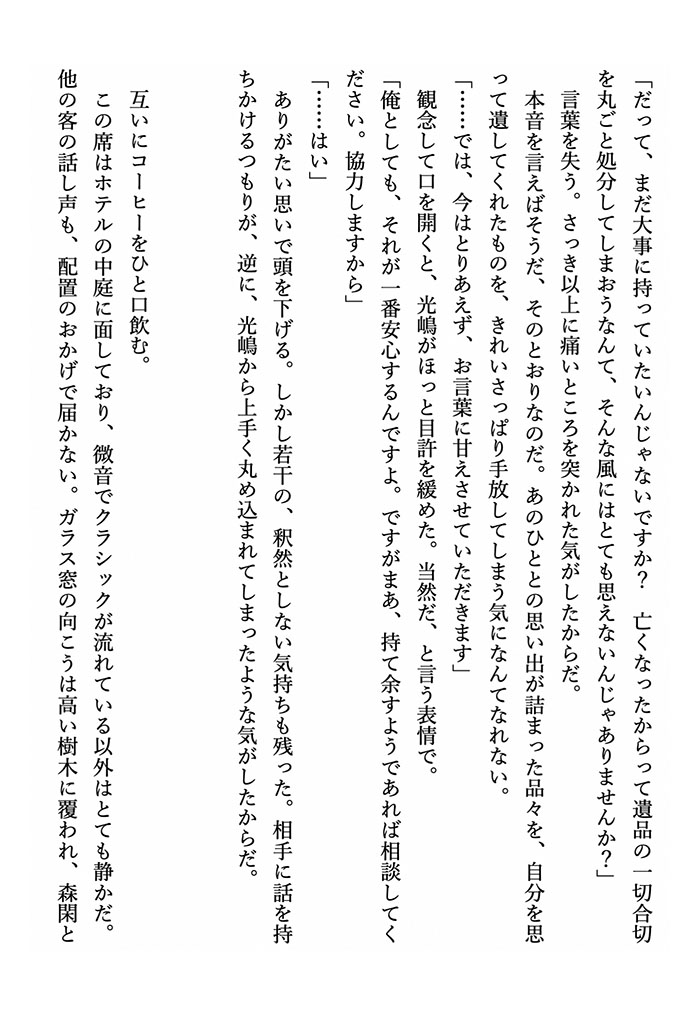 「だって、まだ大事に持っていたいんじゃないですか?　亡くなったからって遺品の一切合切
を丸ごと処分してしまおうなんて、そんな風にはとても思えないんじゃありませんか?」
　言葉を失う。さっき以上に痛いところを突かれた気がしたからだ。
　本音を言えばそうだ、そのとおりなのだ。あのひととの思い出が詰まった品々を、自分を思
って遺してくれたものを、きれいさっぱり手放してしまう気になんてなれない。
「……では、今はとりあえず、お言葉に甘えさせていただきます」
　観念して口を開くと、光嶋がほっと目許を緩めた。当然だ、と言う表情で。
「俺としても、それが一番安心するんですよ。ですがまあ、持て余すようであれば相談してく
ださい。協力しますから」
「……はい」
　ありがたい思いで頭を下げる。しかし若干の、釈然としない気持ちも残った。相手に話を持
ちかけるつもりが、逆に、光嶋から上手く丸め込まれてしまったような気がしたからだ。
　互いにコーヒーをひと口飲む。
　この席はホテルの中庭に面しており、微音でクラシックが流れている以外はとても静かだ。
他の客の話し声も、配置のおかげで届かない。ガラス窓の向こうは高い樹木に覆われ、森閑と